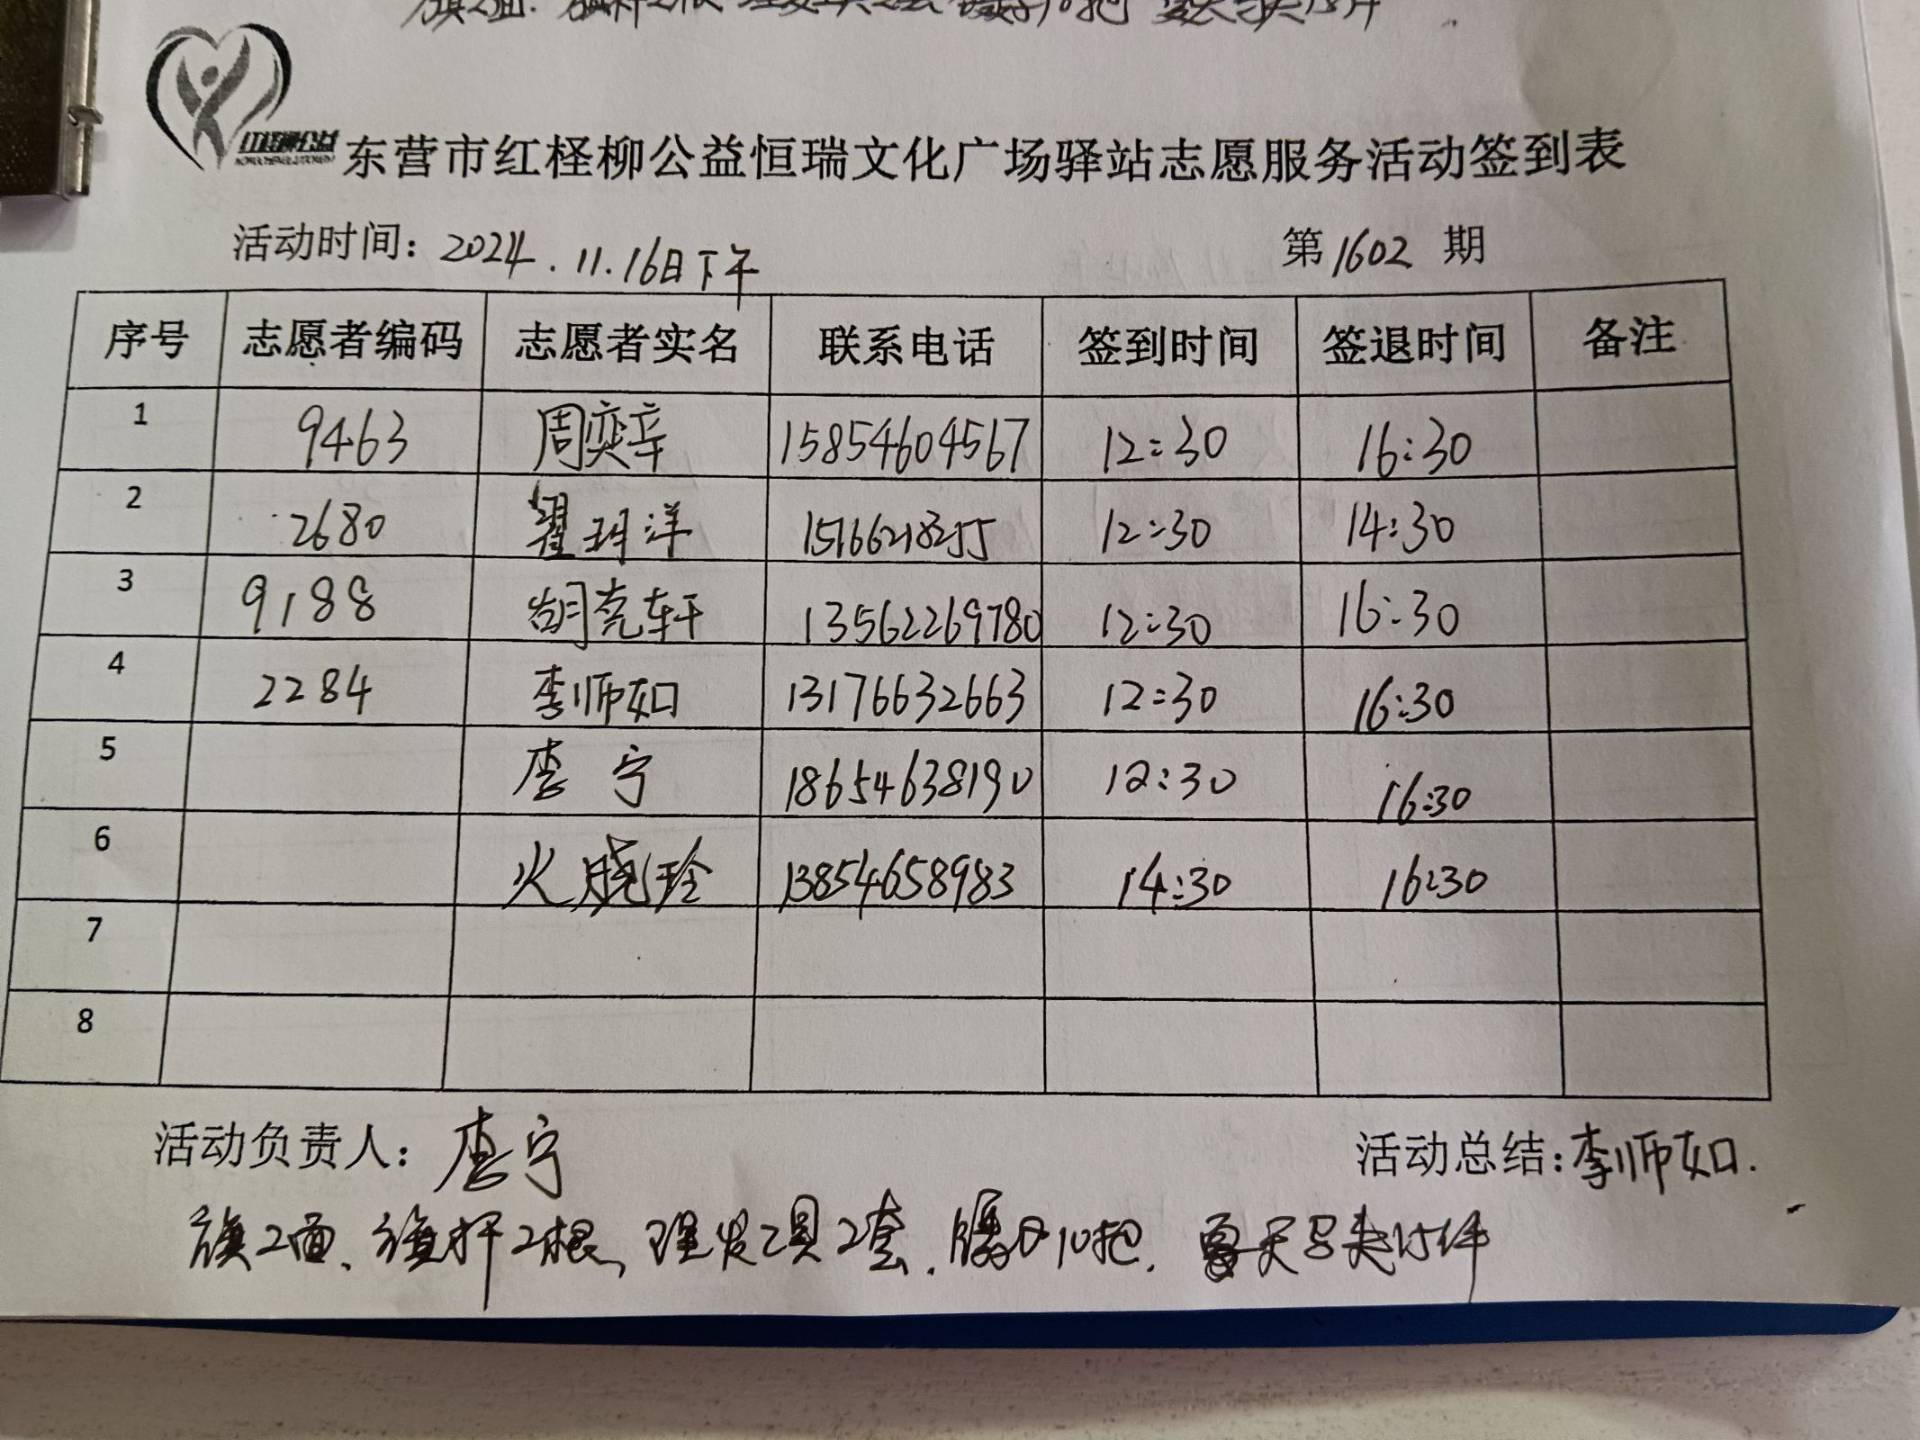 东营市红柽柳公益恒瑞文化广场驿站志愿服务活动签到表
活动时间：2024.11.16日下午 第1602期
序号 志愿者编码 志愿者实名 联系电话 签到时间 签退时间 备注
1 9463 周奕辛 15854604567 12:30 16:30
2 2680 翟玥洋 15166218255 12:30 14:30
3 9188 胡亮轩 13562269780 12:30 16:30
4 2284 李师如 13176632663 12:30 16:30
5 李宁 18654638190 12:30 16:30
6 火晓玲 13854658983 14:30 16:30
7
8
活动负责人：李宁 活动总结：李师如.
旗2面、旗杆2根、理发工具2套. 10把. 夏天马夹15件